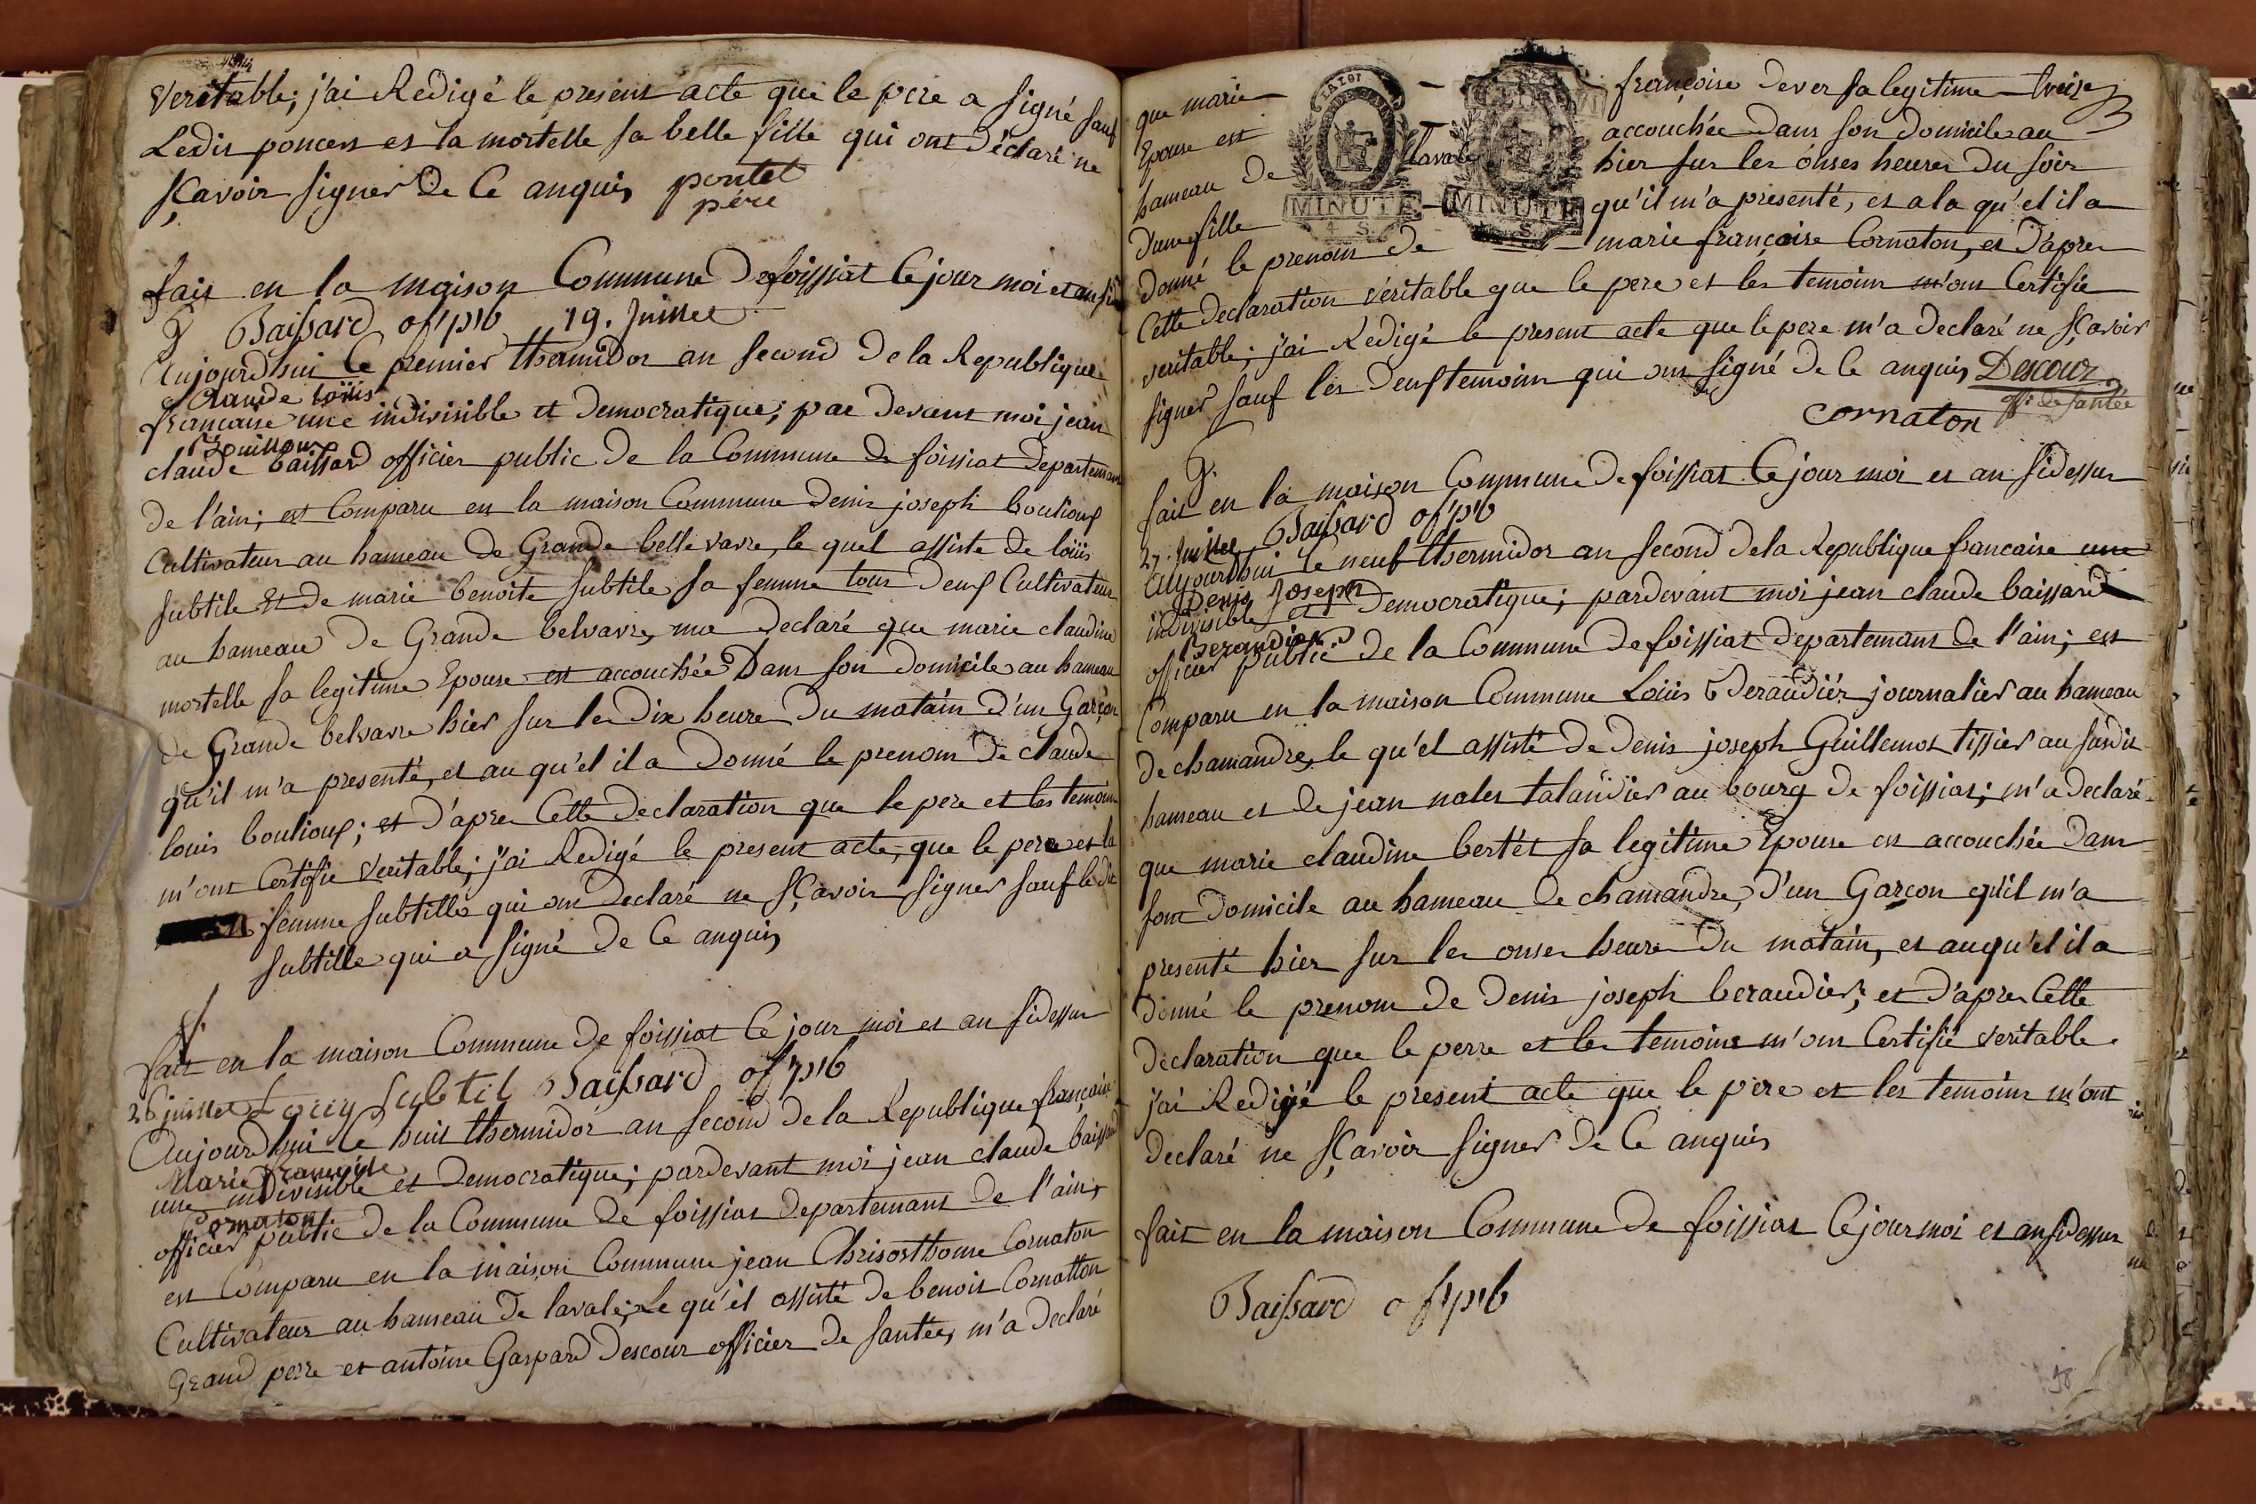 veritable; j'ai Redigé le present acte que le pere a signé sauf
Ledit poncet et la mortelle sa belle fille qui ont déclaré ne
sçavoir signer de Ce anquis pontet
père
fait en la maison Commune de foissiat Ce jour moi et an si
Baissard of'p'b 19. Juillet
Aujourdhui Ce premier thermidor an second de la Republique
Claude Loüis
francaise une indivisible et democratique; par devant moi jean
Bouilloux
claude baissard officier public de la Commune de foissiat departemant
de l'ain; est Comparu en la maison Commune denis joseph boulioux
Cultivateur au hameau de Grande belle vavre, le quel assiste de loüis
subtile Et de marie benoite subtile sa femme tous deux Cultivateur
au hameau de Grande belvavre, ma declaré que marie claudine
mortelle sa legitime Epouse est accouchée Dans son domicile au hameau
de Grande belvavre hier sur le dix heure du matain d'un Garçon
qu'il m'a presenté, et au qu'el il a Donné le prenom De claude
louis boulioux; et d'apre Cette declaration que le pere et les temoin
m'ont Certifie veritable; j'ai Redigé le present acte, que le pere et la
femme subtille qui on declaré ne sçavoir signer sauf le dit
subtille qui a signé de Ce anquis
fait en la maison Commune de foissiat Ce jour moi et an sidessu
26 juillet Louy Subtil Baissard of'p'b
Aujourdhui Ce huit thermidor an second de la Republique française
Marie françoise
une indivisible et democratique; pardevant moi jean claude baissard
Cornaton
officier public de la Commune de foissiat departemant de l'ain,
est Comparu en la maison Commune jean Chrisosthome Cornaton
Cultivateur au hameau De lavale, Le qu'el assisté de benoit Cornatton
Grand perre et antoine Gaspard Descour officier de santée, m'a declaré
que marie françoise dever sa legitime treize
Epouse est accouchée dans son domicile au
hameau de lavale hier sur les onses heures du soir
d'une fille qu'il m'a presenté, et a la qu'el il a
MINUTE MINUTE
donné le prenom de marie françoise Cornaton, et D'apre
Cette declaration veritable que le pere et les temoins m'ont Certifie
veritable; j'ai Redigé le present acte que le pere m'a declaré ne sçavoir
signer sauf les deux temoins qui on signé de Ce anquis Descour
off: de santée
cornaton
fait en la maison Commune de foissiat Ce jour moi et an sidessu
Baissard of'p'b
27. Juillet
Aujourdhui le neuf thermidor an second de la Republique francaise une
Denis Joseph
indivisible et democratique; pardevant moi jean claude baissard
Beraudier
officier public de la Commune de foissiat departemant de l'ain; est
Comparu en la maison Commune Loüis Beraudiér journalier au hameau
de chamandre, le qu'el assisté de denis joseph Guillemot tissier au susdit
hameau et de jean nales talandier au bourg de foissiat; m'a declaré
que marie claudine bertét sa legitime Epouse est accouchée dans
sont domicile au hameau de chamandre, d'un Garçon qu'il m'a
presenté hier sur les onser heure du matain, et auqu'el il a
donné le prenom de denis joseph beraudier; et d'apres Cette
declaration que le perre et les temoins m'on Certifié veritable
j'ai Redigé le present acte que le père et les temoins m'ont
declaré ne sçavoir signer de Ce anquis
fait en la maison Commune de foissiat Ce jour moi et an sidessus
Baissard of'p'b
58